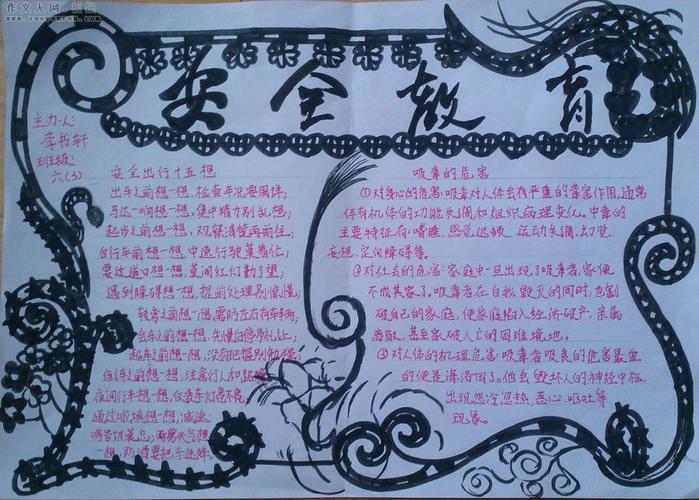 作文人网
安全教育
主办人:
李书轩
班级:
六(3)
安全出行十五想
出车之前想一想,检查车况要周详;
马达一响想一想,集中精力别乱想;
起步之前想一想,观察清楚再前往;
自行车前想一想,中速行驶莫着忙;
要过道口想一想,莫闯红灯勤了望;
遇到障碍想一想,提前处理别惊慌;
转弯之前想一想,需防左右有车辆;
会车之前想一想,先慢后停多礼让;
超车之前想一想,没有把握别勉强;
倒车之前想一想,注意行人和路障;
夜间行车想一想,仪表车灯亮不亮;
通过城镇想一想,减速
鸣号切莫忘;雨雾天气想
一想,防滑要把车速降。
吸毒的危害
①对身心的危害:吸毒对人体会有严重的毒害作用,通常
伴有机体的功能失调和组织病理变化。中毒的
主要特征有:嗜睡、感觉迟钝、运动失调、幻觉、
妄想、定向障碍等。
②对社会的危害:家庭中一旦出现了吸毒者,家便
不成其家了。吸毒者在自我毁灭的同时,也割
破自己的家庭,使家庭陷入经济破产、亲属
离散、甚至家破人亡的困难境地。
③对人体的机理危害:吸毒者吸食的危害最重
的便是海洛因了。他会毁坏人的神经中枢,
出现忽冷忽热、恶心、呕吐等
现象